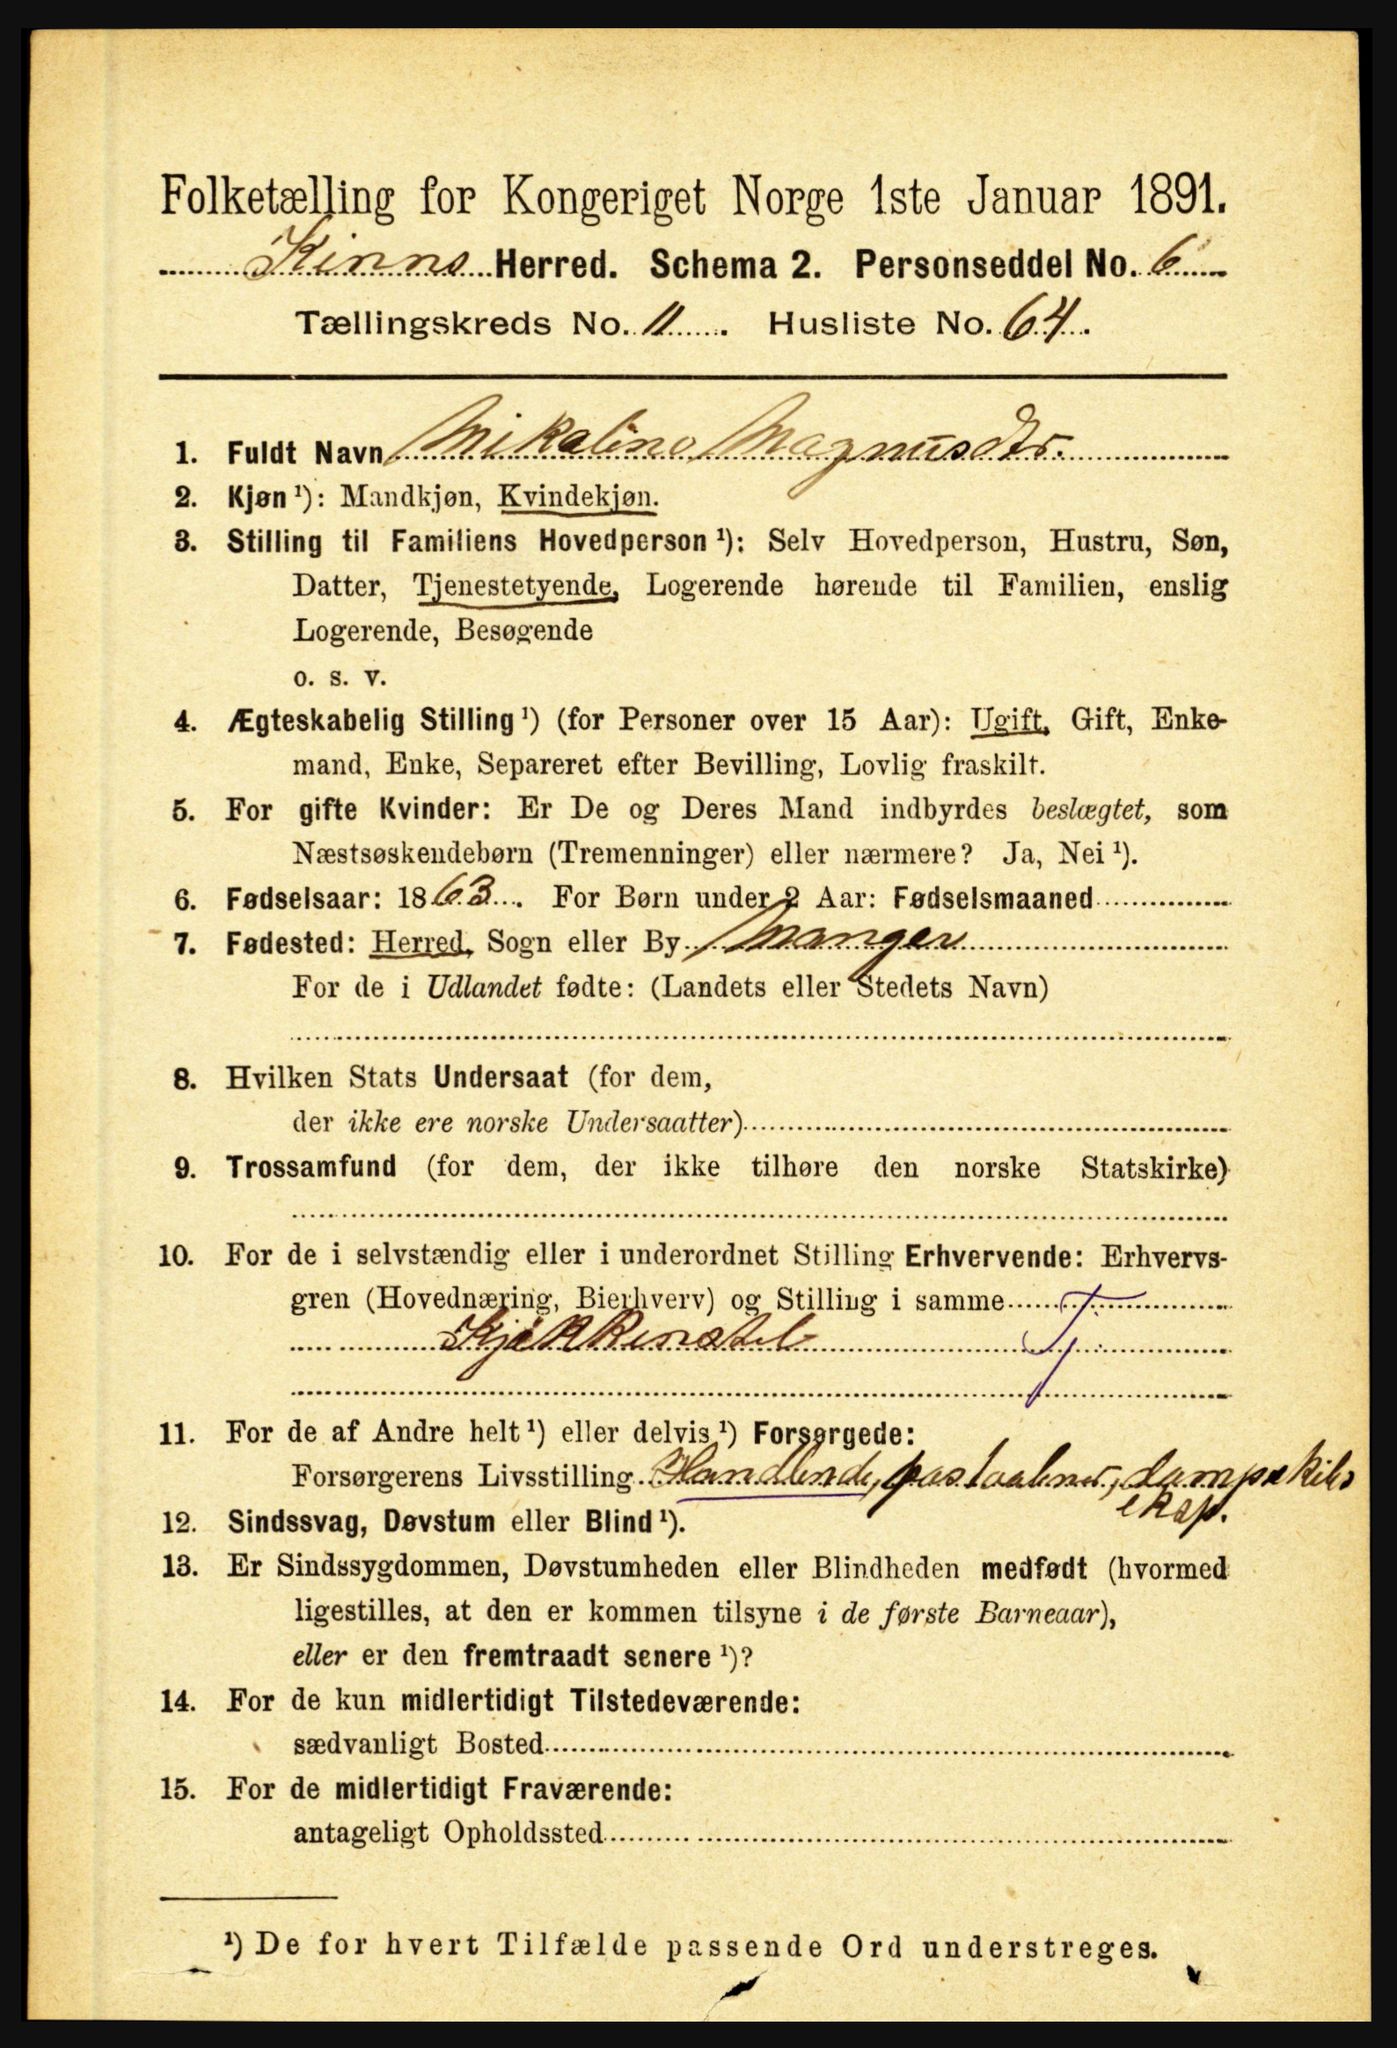 Folketælling for Kongeriget Norge 1ste Januar 1891.
Kinns Herred. Schema 2. Personseddel No. 6
Tællingskreds No. 11. Husliste No. 64.
1. Fuldt Navn Mikaline Magnusdtr.
2. Kjøn ¹): Mandkjøn, Kvindekjøn.
3. Stilling til Familiens Hovedperson ¹): Selv Hovedperson, Hustru, Søn,
Datter, Tjenestetyende, Logerende hørende til Familien, enslig
Logerende, Besøgende
o. s. v.
4. Ægteskabelig Stilling ¹) (for Personer over 15 Aar): Ugift, Gift, Enke-
mand, Enke, Separeret efter Bevilling, Lovlig fraskilt.
5. For gifte Kvinder: Er De og Deres Mand indbyrdes beslægtet, som
Næstsøskendebørn (Tremenninger) eller nærmere? Ja, Nei ¹).
6. Fødselsaar: 1863. For Børn under 2 Aar: Fødselsmaaned
7. Fødested: Herred, Sogn eller By Manger
For de i Udlandet fødte: (Landets eller Stedets Navn)
8. Hvilken Stats Undersaat (for dem,
der ikke ere norske Undersaatter)
9. Trossamfund (for dem, der ikke tilhøre den norske Statskirke)
10. For de i selvstændig eller i underordnet Stilling Erhvervende: Erhvervs-
gren (Hovednæring, Bierhverv) og Stilling i samme
Kjøkkenstel T
11. For de af Andre helt ¹) eller delvis ¹) Forsørgede:
Forsørgerens Livsstilling Handlende, postaabner, dampskibs
eksp.
12. Sindssvag, Døvstum eller Blind ¹).
13. Er Sindssygdommen, Døvstumheden eller Blindheden medfødt (hvormed
ligestilles, at den er kommen tilsyne i de første Barneaar),
eller er den fremtraadt senere ¹)?
14. For de kun midlertidigt Tilstedeværende:
sædvanligt Bosted
15. For de midlertidigt Fraværende:
antageligt Opholdssted
¹) De for hvert Tilfælde passende Ord understreges.